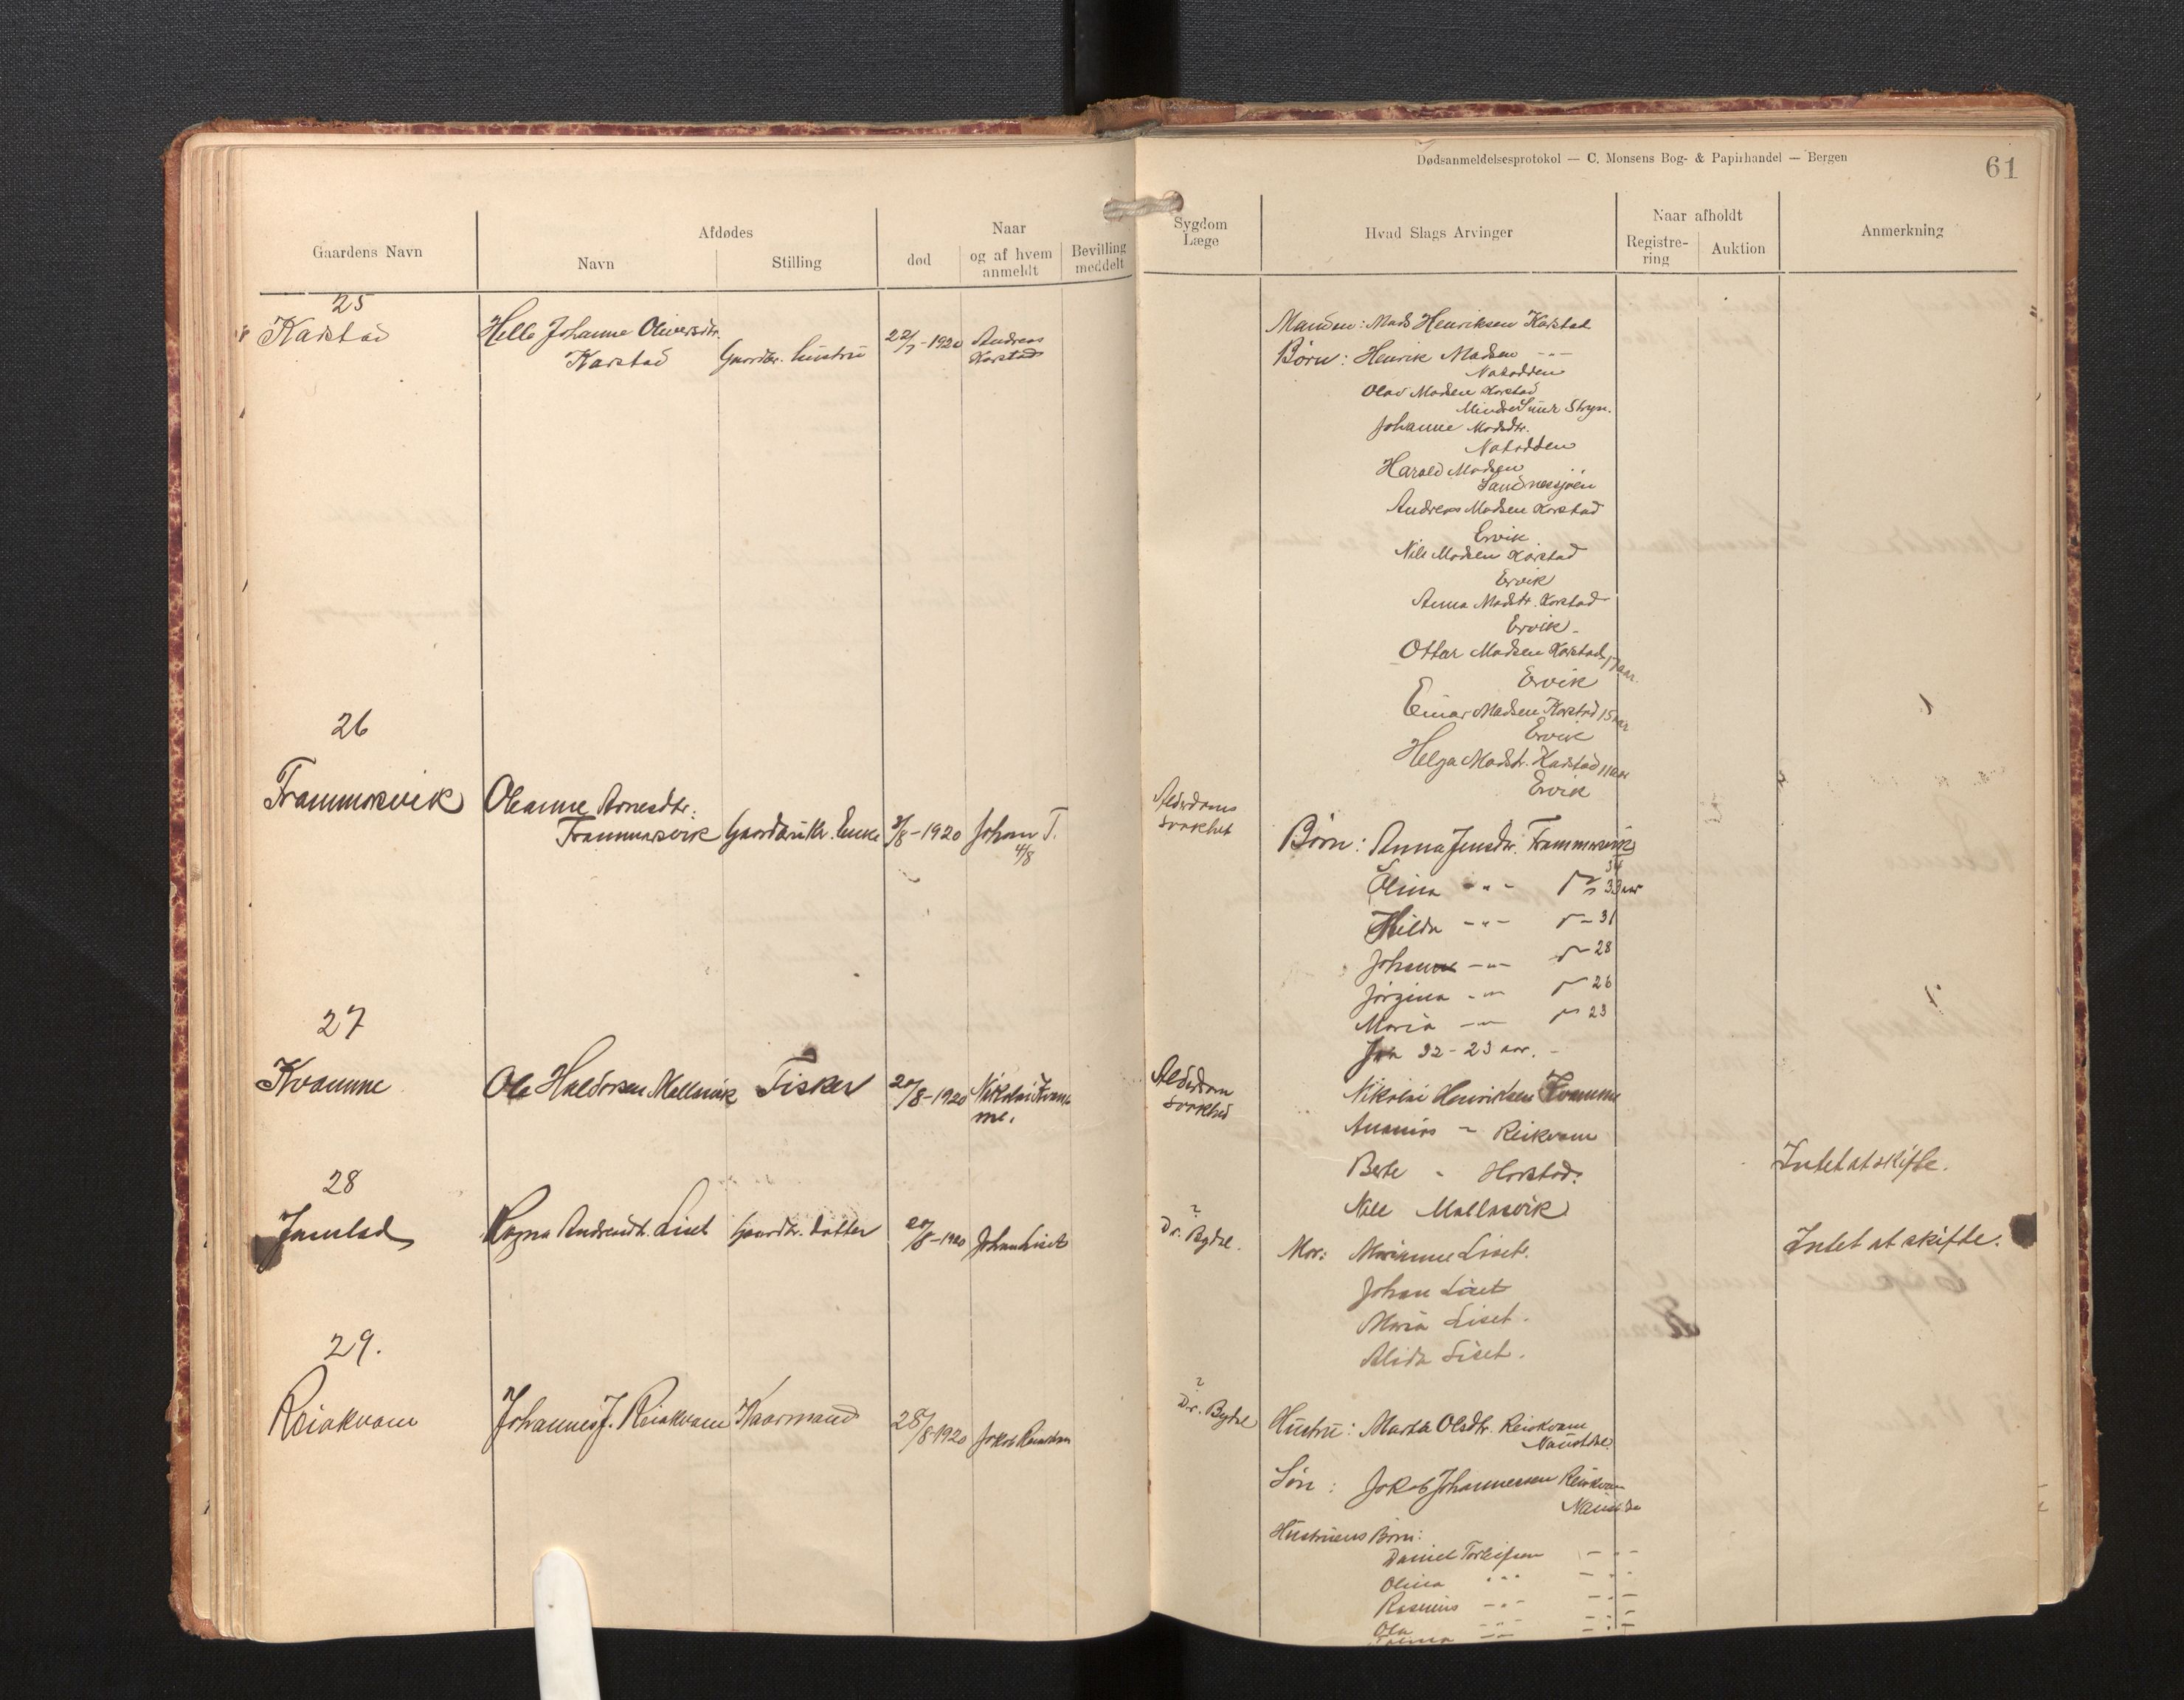 Dødsanmeldelsesprotokol — C. Monsens Bog- & Papirhandel — Bergen
61
Gaardens Navn
Afdødes
Navn
Stilling
Naar
død
og af hvem anmeldt
Bevilling meddelt
Sygdom
Læge
Hvad Slags Arvinger
Naar afholdt
Registrering
Auktion
Anmerkning
25
Karstad
Helle Johanne Oliversdtr.
Karstad
Gaardbr. hustru
22/7-1920
Andreas
Karstad
Manden: Mads Henriksen Karstad
Børn: Henrik Madsen -"-
Notodden
Olav Madsen Karstad
Stryn.
Johanne Madsdtr.
Notodden
Harald Madsen
Sandnessjøen
Andreas Madsen Karstad
Ervik
Nils Madsen Karstad
Ervik
Anna Madsdtr. Karstad
Ervik
Ottar Madsen Karstad 17 aar.
Ervik
Einar Madsen Karstad 15 aar
Ervik
Helga Madsdtr. Karstad 11 aar
Ervik
26
Frammarsvik
Oleanne Arnesdtr.
Frammarsvik
Gaardbruker Enke
3/8-1920
Johan T.
4/8
Alderdoms
svakhet
Børn: Anna Jensdtr. Frammarsvik
34
Olina -"- 33 aar
Hilda -"- 31
Johanne -"- 28
Jørgina -"- 26
Maria -"- 23
27
Kvamme
Ole Haldorsen Mallasvik
Fisker
20/8-1920
Nikolai Kvamme.
Alderdom
svakhed
Nikolai Henriksen Kvamme
Ananias " Reikvam
Berte " Harstad.
Nils Mallasvik
Intet at skifte.
28
Jamstad
Ragna Andreasdtr. Liset
Gaardbr. datter
20/8-1920
Johan Liset
?
Dr. Bydal.
Mor: Marianne Liset.
Johan Liset
Maria Liset.
Alida Liset.
Intet at skifte.
29.
Reiakvam
Johannes J. Reiakvam
Kaarmand
28/8-1920
Jakob Reiakvam
?
Dr. Bydal
Hustru: Marta Olsdtr. Reiakvam
Naustdal
Søn: Jakob Johannessen Reiakvam
Naustdal
Hustruens Børn:
Daniel Torleifsen -"-
Olina -"- -"-
Rasmus -"- -"-
Ola -"- -"-